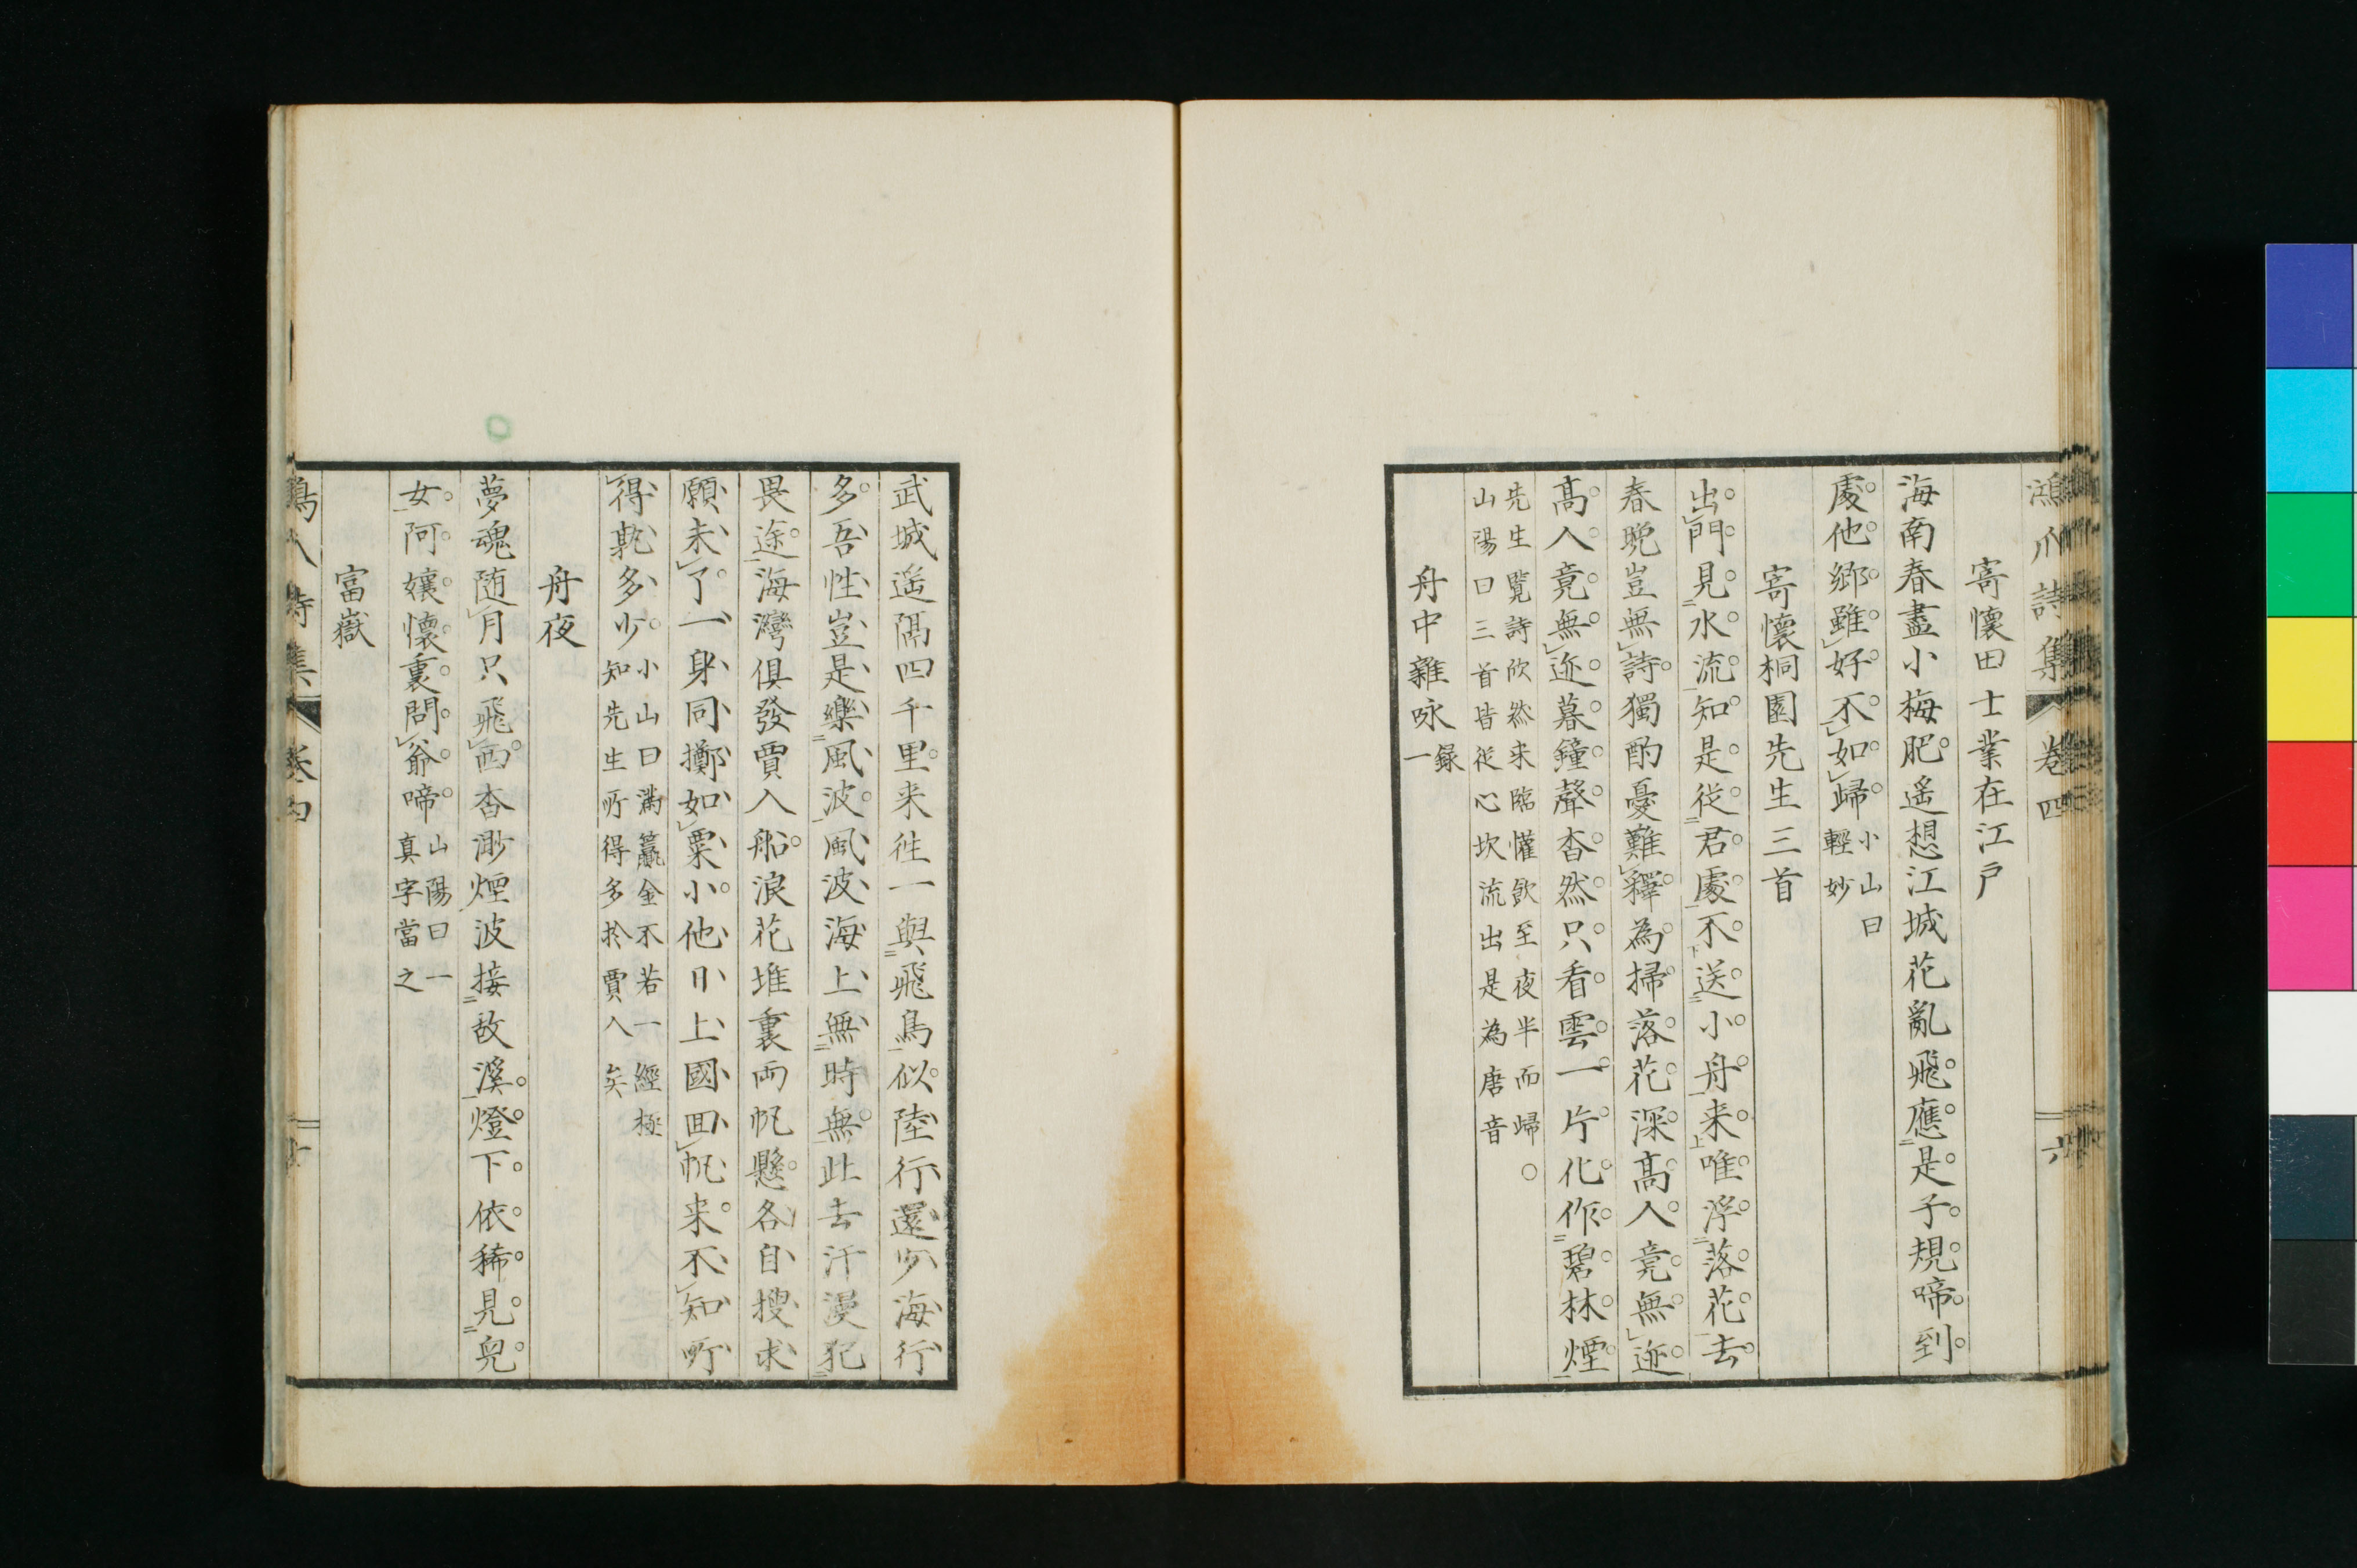 鴻爪詩集 卷四 六
寄懷田士業在江戸
海南春盡小梅肥遥想江城花亂飛應是子規啼到
處他郷雖好不如歸小山曰輕妙
寄懷桐園先生三首
出門見水流知是從君處不送小舟来唯浮落花去
春晩豈無詩獨酌憂難釋為掃落花深髙人竟無迹
髙人竟無迹暮鐘聲杳然只看雲一片化作碧林煙
先生覧詩欣然来臨懽飲至夜半而歸○
山陽曰三首皆從心坎流出是為唐音
舟中雜咏録一
武城遥隔四千里来徃一與飛鳥似陸行還少海行
多吾性豈是樂風波風波海上無時無此去汗漫犯
畏途海灣俱發賈人船浪花堆裏両帆懸各自搜求
願未了一身同擲如粟小他日上國回帆来不知所
得孰多少小山曰滿籯金不若一經極
知先生所得多於賈人矣
舟夜
夢魂随月只飛西杳渺煙波接故溪燈下依稀見兒
女阿孃懷裏問爺啼山陽曰一
真字當之
富嶽